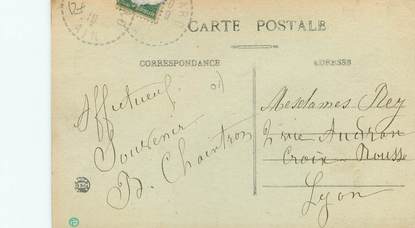 CARTE POSTALE
CORRESPONDANCE
ADRESSE
Affectueux
Souvenir
B. Chaintron
Mesdames Rey
2 rie Audran
Croix-Rousse
Lyon